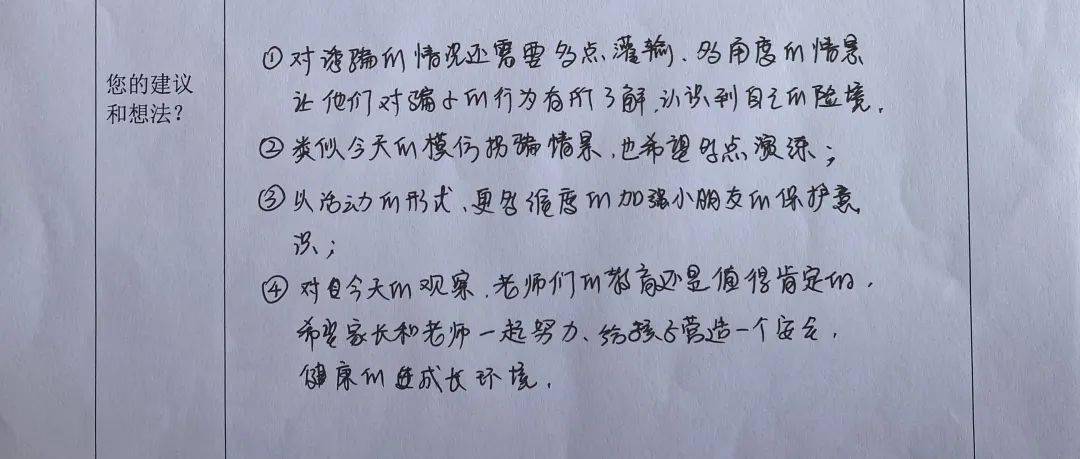 您的建议
和想法？
①对诱骗的情况还需要多点灌输、多角度的情景
让他们对骗子的行为有所了解，认识到自己的险境。
②类似今天的模仿拐骗情景，也希望多点演练；
③以活动的形式、更多维度的加强小朋友的保护意
识；
④对自今天的观察，老师们的教育还是值得肯定的，
希望家长和老师一起努力、给孩子营造一个安全，
健康的成长环境。